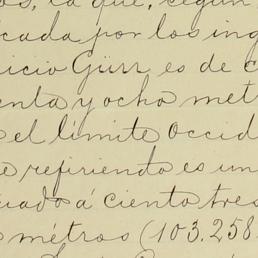 os, la que, según
icada por los ing
icio Gürr es de c
enta y ocho metr
el límite Occid
e refiriendo es un
uado á ciento tres
metros (103.258